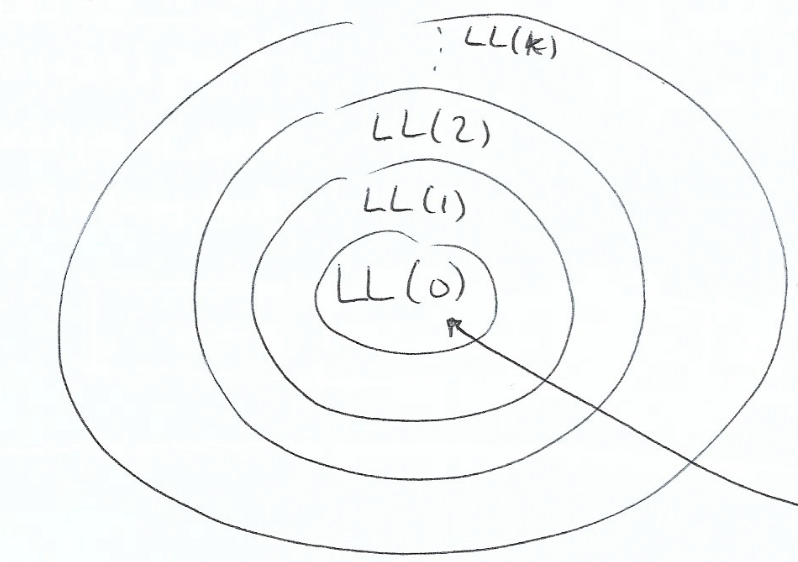 LL(k)
LL(2)
LL(1)
LL(0)